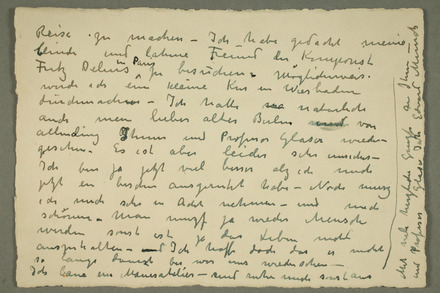 Reise zu machen – Ich habe gedacht meine
blinde und lahme Freund den Komponist
Fritz Delius in Paris zu besuchen – Möglicherweise
würde ich eine kleine Kur in Wiesbaden
durchmachen – Ich hatte natürlich
auch mein lieber altes Berlin und vor
allem Ihnen und Professor Glaser wieder
gesehen. Es ist aber leider sehr unsicher –
Ich bin ja jetzt viel besser als ich mich
jetzt ein bischen ausgeruht habe – Noch muss
ich mich sehr in Acht nehmen – und mich
schonen – Man muss ja wieder Mensch
werden sonst ist ja das Leben nicht
auszuhalten – und Ich hoffe doch dass es nicht
so lange dauert bis wir uns wiedersehen –
Ich baue ein Winteratelier – und ruhe mich sonst aus
Mit viele herzliche Grüsse an Ihnen
und Professor Glaser Ihr Edvard Munch